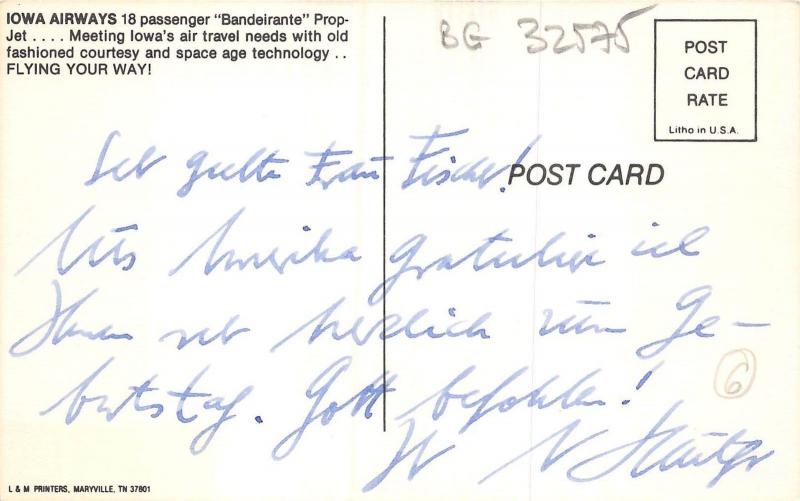 IOWA AIRWAYS 18 passenger "Bandeirante" Prop-
Jet . . . . Meeting Iowa's air travel needs with old
fashioned courtesy and space age technology . .
FLYING YOUR WAY!
BG 32575
POST
CARD
RATE
Litho in U.S.A.
POST CARD
Frau Fischer!
Aus Amerika gratuliere ich
Ihnen sehr herzlich zum Ge-
burtstag. Gott befohlen!
6
L & M PRINTERS, MARYVILLE, TN 37801